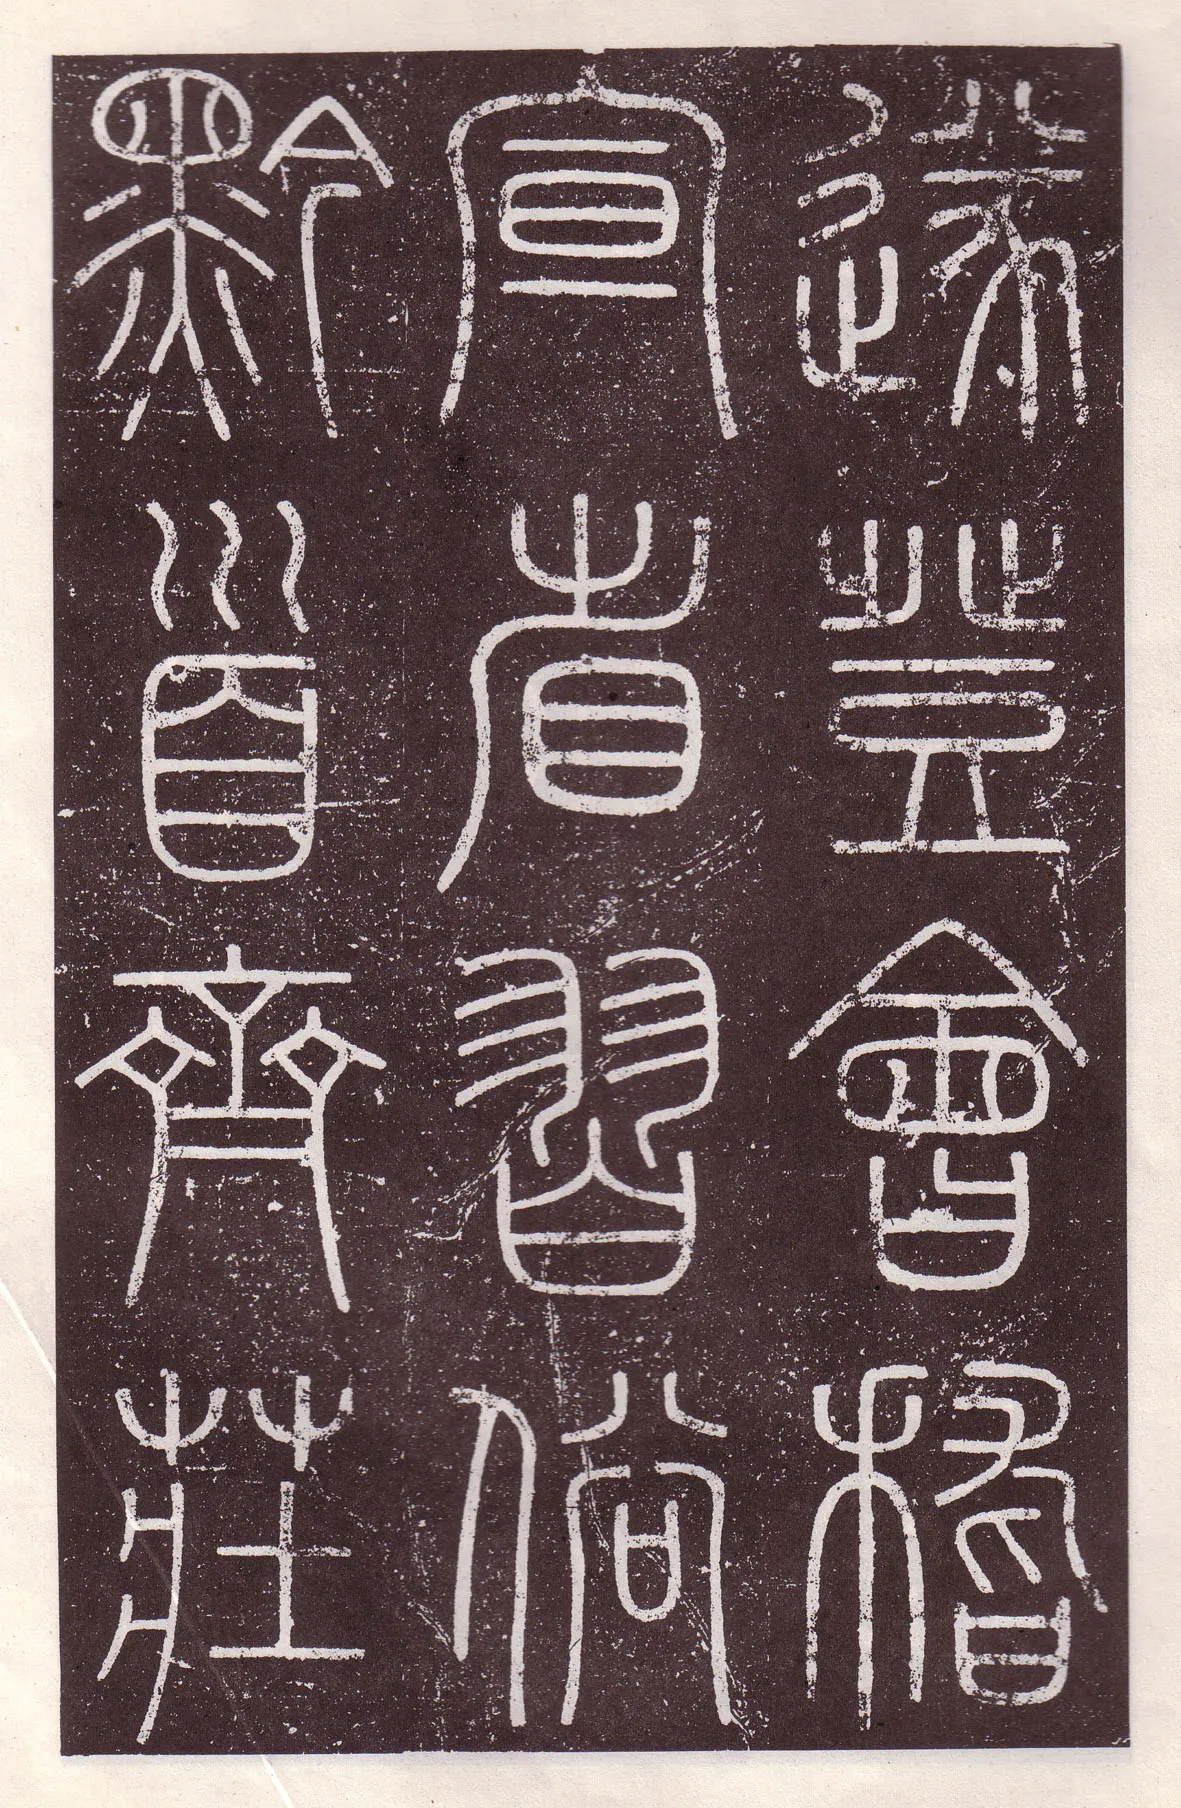 遂登會稽
宣省習俗
黔首齊莊